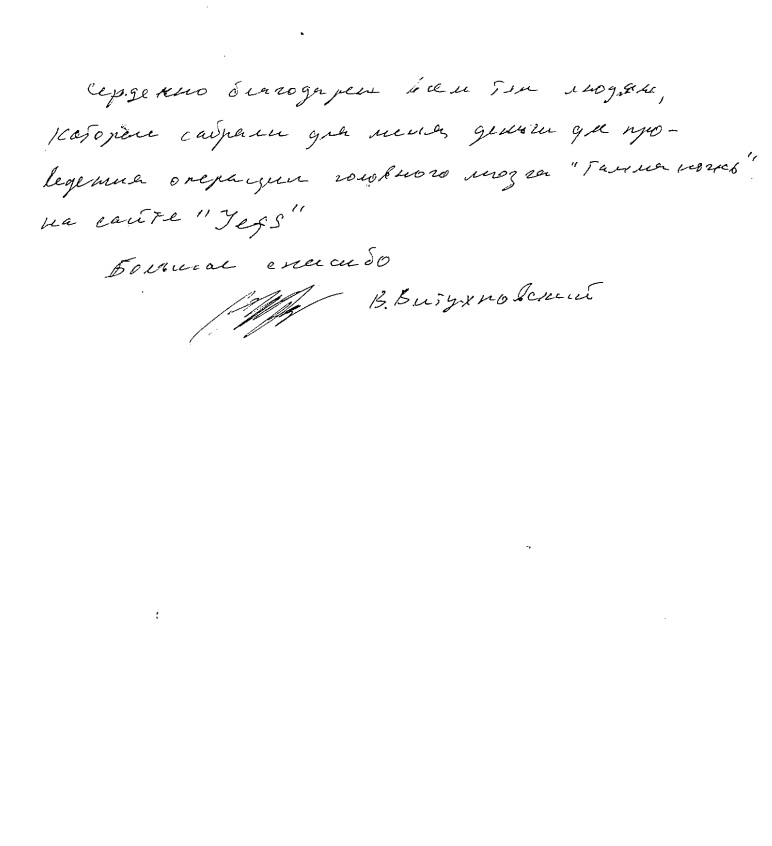 Сердечно благодарен всем тем людям,
которые собрали для меня деньги для про-
ведения операции головного мозга "Гамма ножь"
на сайте "Yegs"
Большое спасибо
В. Витухновский